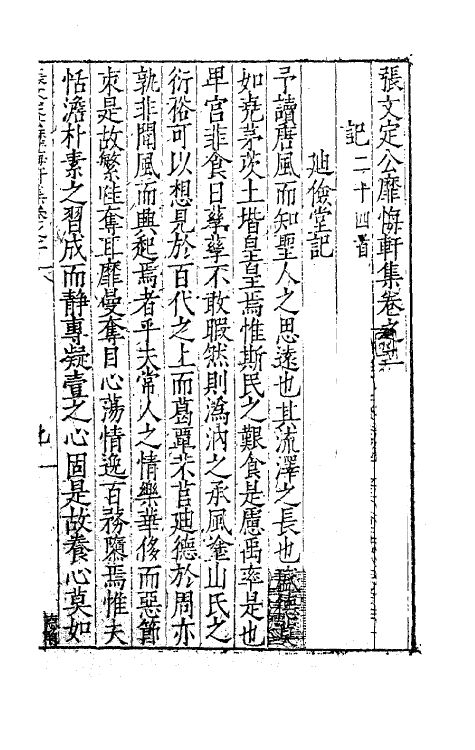 張文定公靡悔軒集卷之二
記二十四首
廸儉堂記
予讀唐風而知聖人之思遠也其流澤之長也
如堯茅茨土堦皇皇焉惟斯民之艱食是慮禹率是也
卑宮菲食日孳孳不敢暇然則溈汭之承風塗山氏之
衍裕可以想見於百代之上而葛覃苤苢廸德於周亦
孰非聞風而興起焉者乎夫常人之情樂華侈而惡節
朿是故繁哇奪耳靡曼奪目心蕩情逸百務隳焉惟夫
恬澹朴素之習成而静專凝壹之心固是故養心莫如